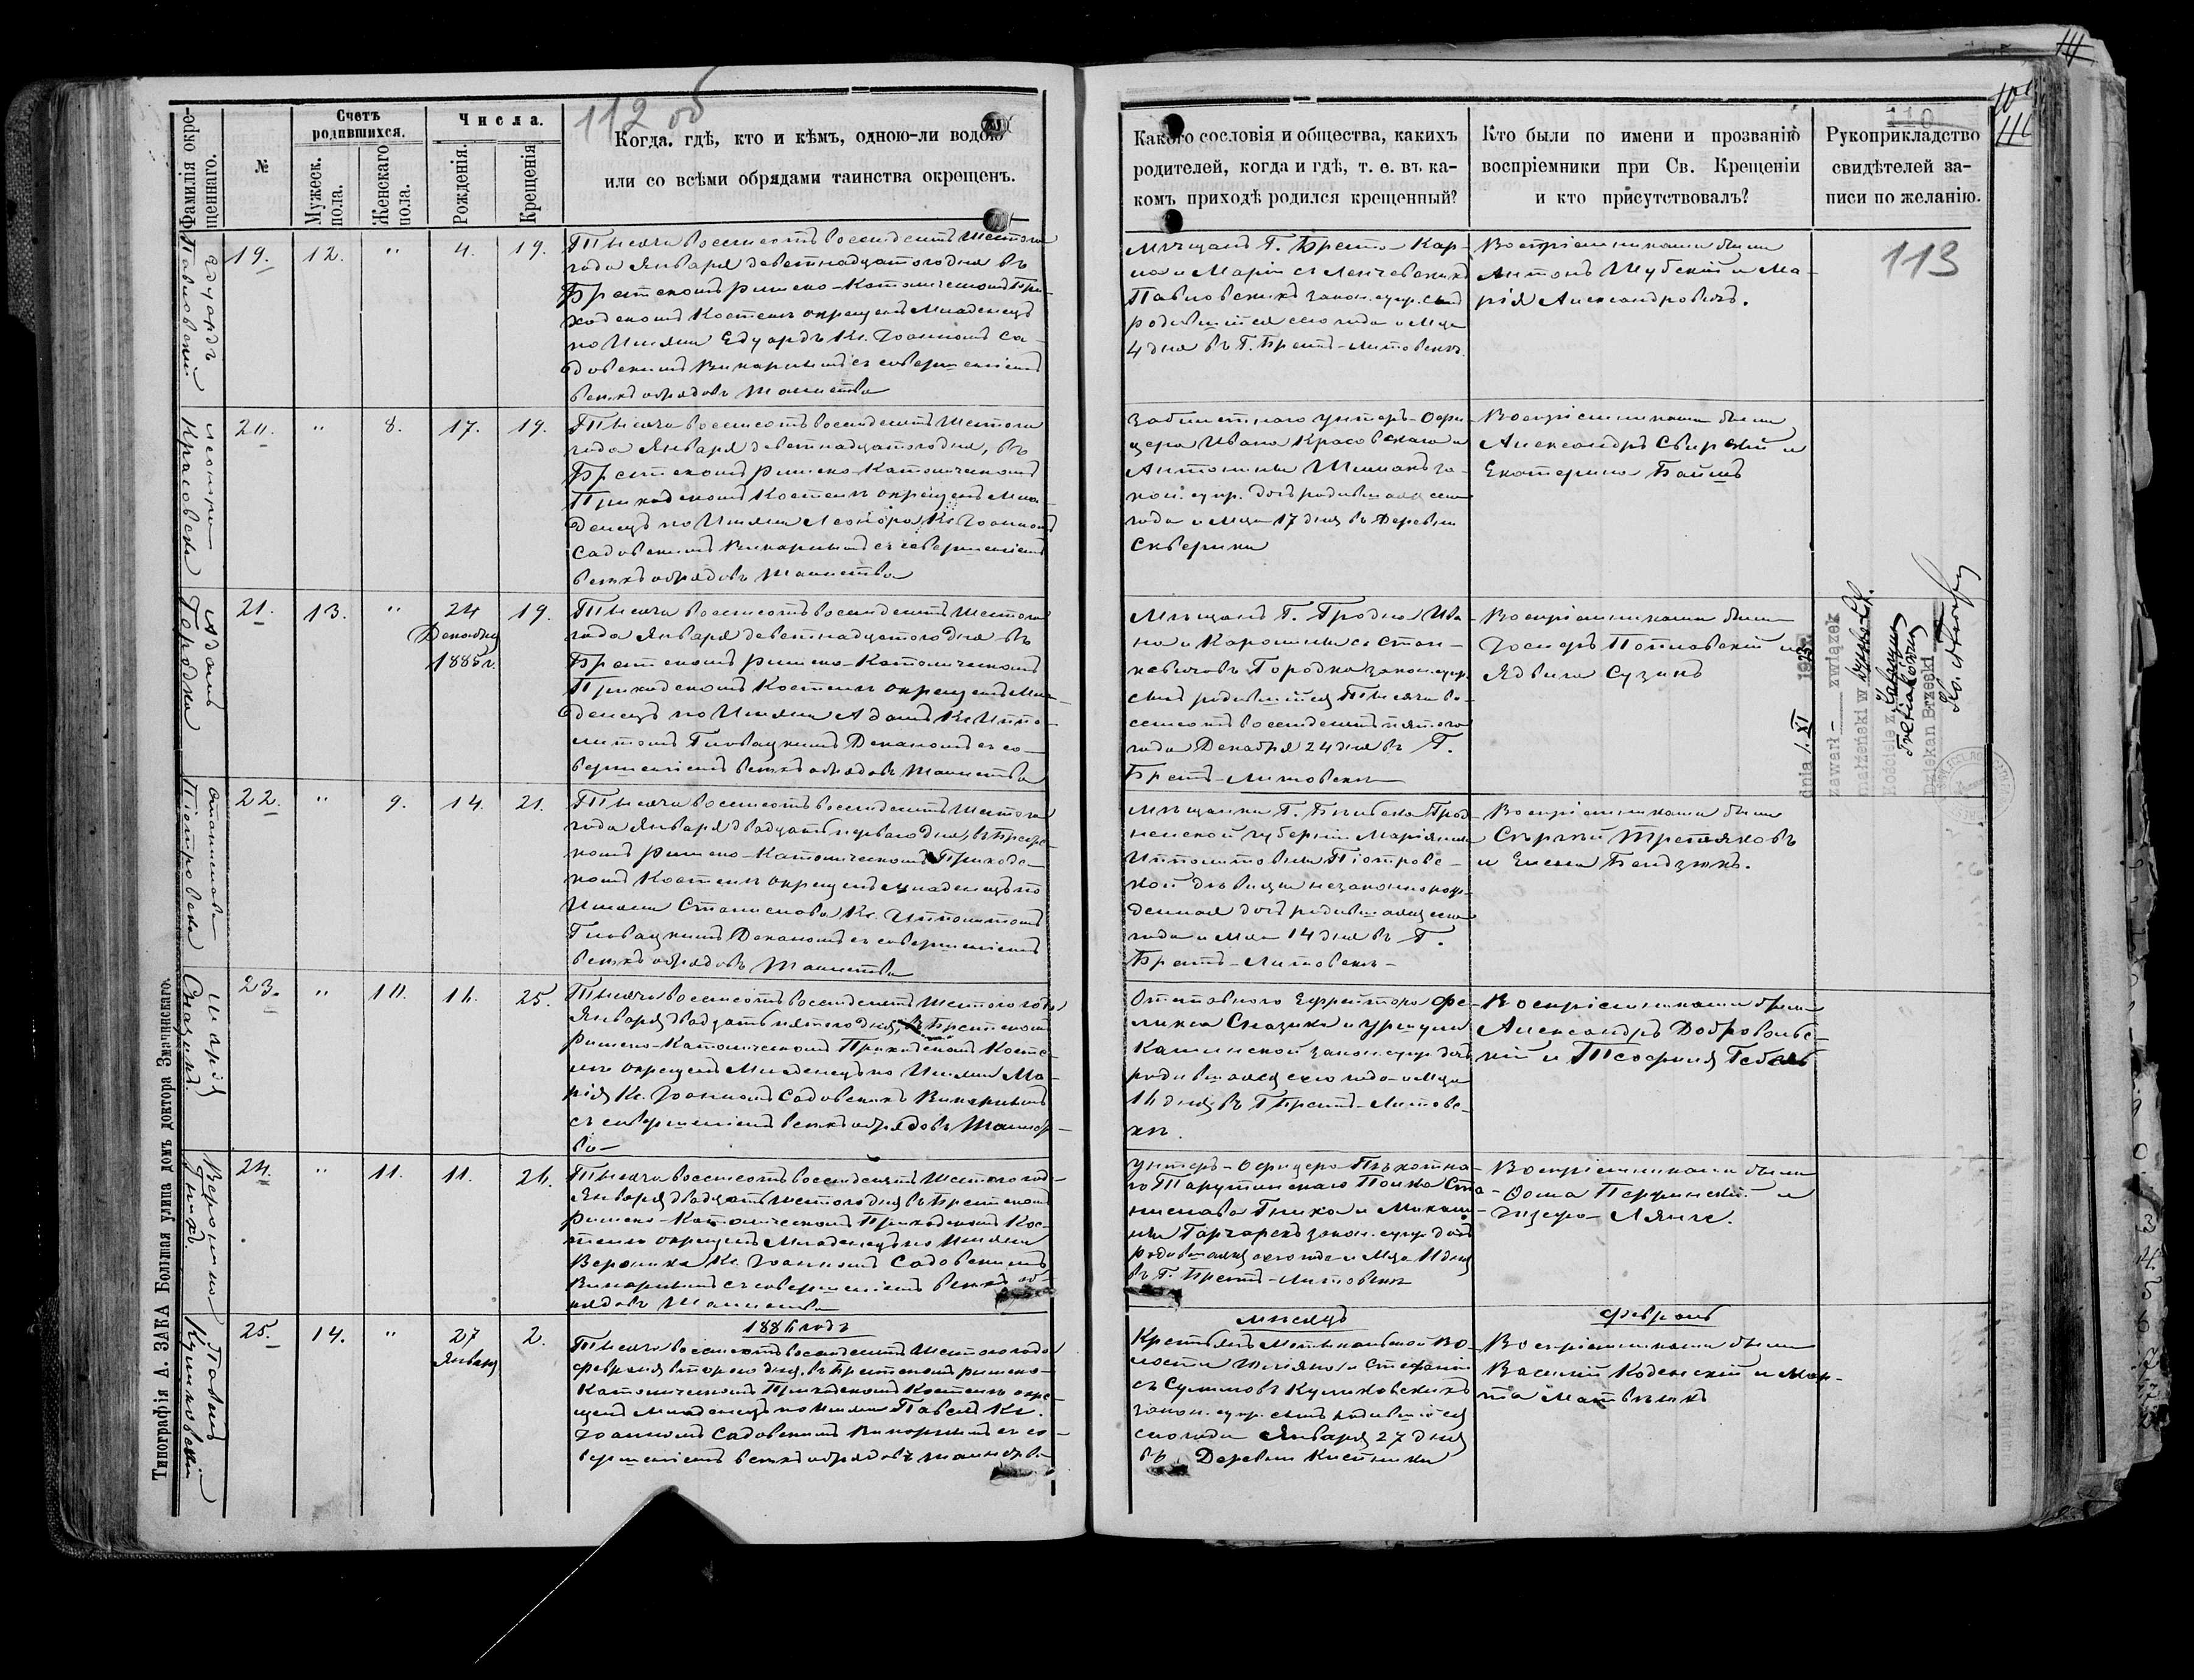 112 об
Фамилія окрещеннаго.
№
Счетъ родившихся.
Мужеск. пола.
Женскаго пола.
Числа.
Рожденія.
Крещенія
Когда, гдѣ, кто и кѣмъ, одною-ли водою
или со всѣми обрядами таинства окрещенъ.
Едуардъ
Павловскій
19.
12.
"
4.
19.
Тысяча восемсотъ восемдесятъ шестого
года Января девятнадцатого дня въ
Брестскомъ римско-Католическомъ При-
ходскомъ Костелѣ окрещенъ Младенецъ
по Имяни Едуардъ Кс. Іоанномъ Са-
довскимъ Викарнымъ съ совершеніемъ
всѣхъ обрядовъ Таинства
Леонора
Красовска
20.
"
8.
17.
19.
Тысяча восемсотъ восемдесятъ шестого
года Января девятнадцатого дня, въ
Брестскомъ римско-Католическомъ
Приходскомъ Костелѣ окрещенъ Мла-
денецъ по Имяни Леонора Кс. Іоанномъ
Садовскимъ Викарнымъ съ совершеніемъ
всѣхъ обрядовъ Таинства
Адамъ
Городка
21.
13.
"
24
Декабря
1885 г.
19.
Тысяча восемсотъ восемдесятъ шестого
года Января девятнадцатого дня въ
Брестскомъ римско-Католическомъ
Приходскомъ Костелѣ окрещенъ Мла-
денецъ по Имяни Адамъ Кс. Иппо-
литомъ Гловацкимъ Деканомъ съ со-
вершеніемъ всѣхъ обрядовъ Таинства
Станислава
Піотровска
22.
"
9.
14.
21.
Тысяча восемсотъ восемдесятъ шестого
года Января двадцать перваго дня, въ Брест-
комъ римско-Католическомъ Приходс-
комъ Костелѣ окрещенъ младенецъ по
Имяни Станислава Кс. Ипполитомъ
Гловацкимъ Деканомъ съ совершеніемъ
всѣхъ обрядовъ Таинства
Марія
23.
"
10.
16.
25.
Тысяча восемсотъ восемдесятъ шестого года
Января двадцать пятого дня, въ Брестскомъ
римско-Католическомъ Приходскомъ Косте-
лѣ окрещенъ Младенецъ по Имяни Ма-
рія Кс. Іоанномъ Садовскимъ Викарнымъ
съ совершеніемъ всѣхъ обрядовъ Таинст-
ва
Вероника
24.
"
11.
11.
26.
Тысяча восемсотъ восемдесятъ шестого года
Января двадцать шестого дня въ Брестскомъ
римско-Католическомъ Приходскомъ Кос-
телѣ окрещенъ Младенецъ по Имяни
Вероника Кс. Іоанномъ Садовскимъ
Викарнымъ съ совершеніемъ всѣхъ об-
рядовъ Таинства
1886 годъ
Павелъ
Куликовскій
25.
14.
"
27
Января
2.
Тысяча восемсотъ восемдесятъ шестого года
февраля второго дня, въ Брестскомъ римско-
Католическомъ Приходскомъ Костелѣ окре-
щенъ Младенецъ по имяни Павелъ Кс.
Іоанномъ Садовскимъ Викарнымъ съ со-
вершеніемъ всѣхъ обрядовъ таинства
Типографія А. ЗАКА Большая улица домъ доктора Значинскаго.
Какого сословія и общества, какихъ
родителей, когда и гдѣ, т. е. въ ка-
комъ приходѣ родился крещенный?
Кто были по имени и прозванію
воспріемники при Св. Крещеніи
и кто присутствовалъ?
110
Рукоприкладство
свидѣтелей за-
писи по желанію.
113
Мѣщанъ Г. Бреста Кар-
ла и Маріи съ
Павловскихъ закон. супр. сынъ
родившійся сего года и Мца
4 дня въ Г. Брестъ-Литовскѣ.
Воспріемниками были
Антонъ Шубскій и Ма-
рія Александровичъ.
Забилетнаго унтеръ-Офи-
цера Ивана Красовскаго и
Антонины за-
кон. супр. дочь родившаяся сего
года и Мца 17 дня въ Деревни
Скверики
Воспріемниками были
Александръ Свирскій и
Екатерина
Мѣщанъ Г. Гродна Ива-
на и Каролины съ Стан-
кевичовъ Городка закон. супр.
сынъ родившійся Тысяча во-
семсотъ восемдесятъ пятого
года Декабря 24 дня въ Г.
Брестъ-Литовскѣ
Воспріемниками были
Іосифъ Поплавскій и
Ядвига Сузинъ
dnia 1.XI 1923
zawarł związek
małżeński w
Kościele z
Dziekan Brzeski
Мѣщанки Г. Грод-
ненской губерніи Маріанны
Ипполитовны Піотровс-
кой дѣвицы незаконнорож-
денная дочь родившаяся сего
года и Мца 14 дня въ Г.
Брестъ-Литовскѣ-
Воспріемниками были
Сергѣй Третяковъ
и Елена Бендзюкъ.
Отставного Ефрейтора Фе-
ликса и Уршули
Калинской закон. супр. дочь
родившаяся сего года и Мца
16 дня въ Г. Брестъ-Литовс-
кѣ.
Воспріемниками были
Александръ Добровольс-
кій и Теофилія
Унтеръ-Офицера Пѣхотна-
го Тарутинскаго Полка Ста-
нислава и
закон. супр. дочь
родившаяся сего года и Мца 11 дня
въ Г. Брестъ-Литовскѣ
Воспріемниками были
Фома и
Юзефа
мѣсяцъ
февраль
Крестьянъ Во-
лости и Стефаніи
съ Куликовскихъ
закон. супр. сынъ родившійся
сего года Января 27 дня
въ Деревни
Воспріемниками были
Василій Коденскій и Мар-
та